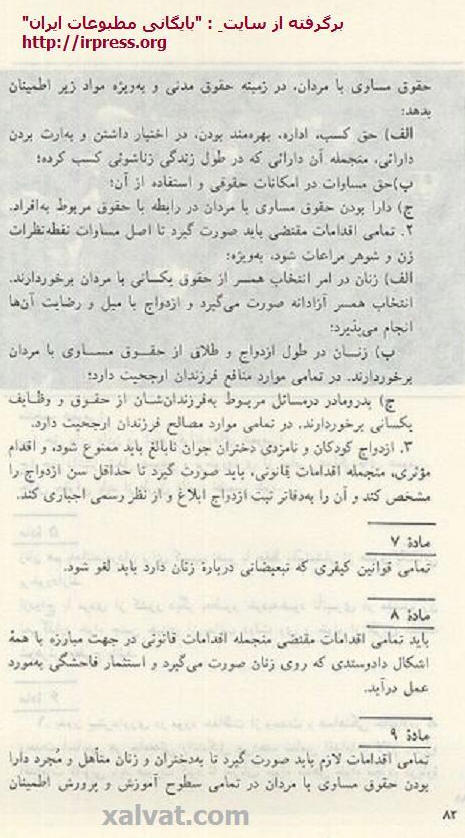 برگرفته از سایت : "بایگانی مطبوعات ایران"
http://irpress.org
حقوق مساوی با مردان، در زمینه حقوق مدنی و به‌ویژه مواد زیر اطمینان
بدهد:
الف) حق کسب، اداره، بهره‌مند بودن، در اختیار داشتن و به‌ارث بردن
دارائی، منجمله آن دارائی که در طول زندگی زناشوئی کسب کرده؛
پ)حق مساوات در امکانات حقوقی و استفاده از آن؛
ج) دارا بودن حقوق مساوی با مردان در رابطه با حقوق مربوط به‌افراد.
۲. تمامی اقدامات مقتضی باید صورت گیرد تا اصل مساوات نقطه‌نظرات
زن و شوهر مراعات شود، به‌ویژه:
الف) زنان در امر انتخاب همسر از حقوق یکسانی با مردان برخوردارند.
انتخاب همسر آزادانه صورت می‌گیرد و ازدواج با میل و رضایت آن‌ها
انجام می‌پذیرد؛
پ) زنان در طول ازدواج و طلاق از حقوق مساوی با مردان
برخوردارند. در تمامی موارد منافع فرزندان ارجحیت دارد؛
ج) پدرومادر درمسائل مربوط به‌فرزندان‌شان از حقوق و وظایف
یکسانی برخوردارند. در تمامی موارد مصالح فرزندان ارجحیت دارد.
۳. ازدواج کودکان و نامزدی دختران جوان نابالغ باید ممنوع شود، و اقدام
مؤثری، منجمله اقدامات قانونی، باید صورت گیرد تا حداقل سن ازدواج را
مشخص کند و آن را به‌دفاتر ثبت ازدواج ابلاغ و از نظر رسمی اجباری کند.
مادهٔ ۷
تمامی قوانین کیفری که تبعیضاتی دربارهٔ زنان دارد باید لغو شود.
مادهٔ ۸
باید تمامی اقدامات مقتضی منجمله اقدامات قانونی در جهت مبارزه با همهٔ
اشکال دادوستدی که روی زنان صورت می‌گیرد و استثمار فاحشگی به‌مورد
عمل درآید.
مادهٔ ۹
تمامی اقدامات لازم باید صورت گیرد تا به‌دختران و زنان متأهل و مُجرد دارا
بودن حقوق مساوی با مردان در تمامی سطوح آموزش و پرورش اطمینان
۸۲
xalvat.com